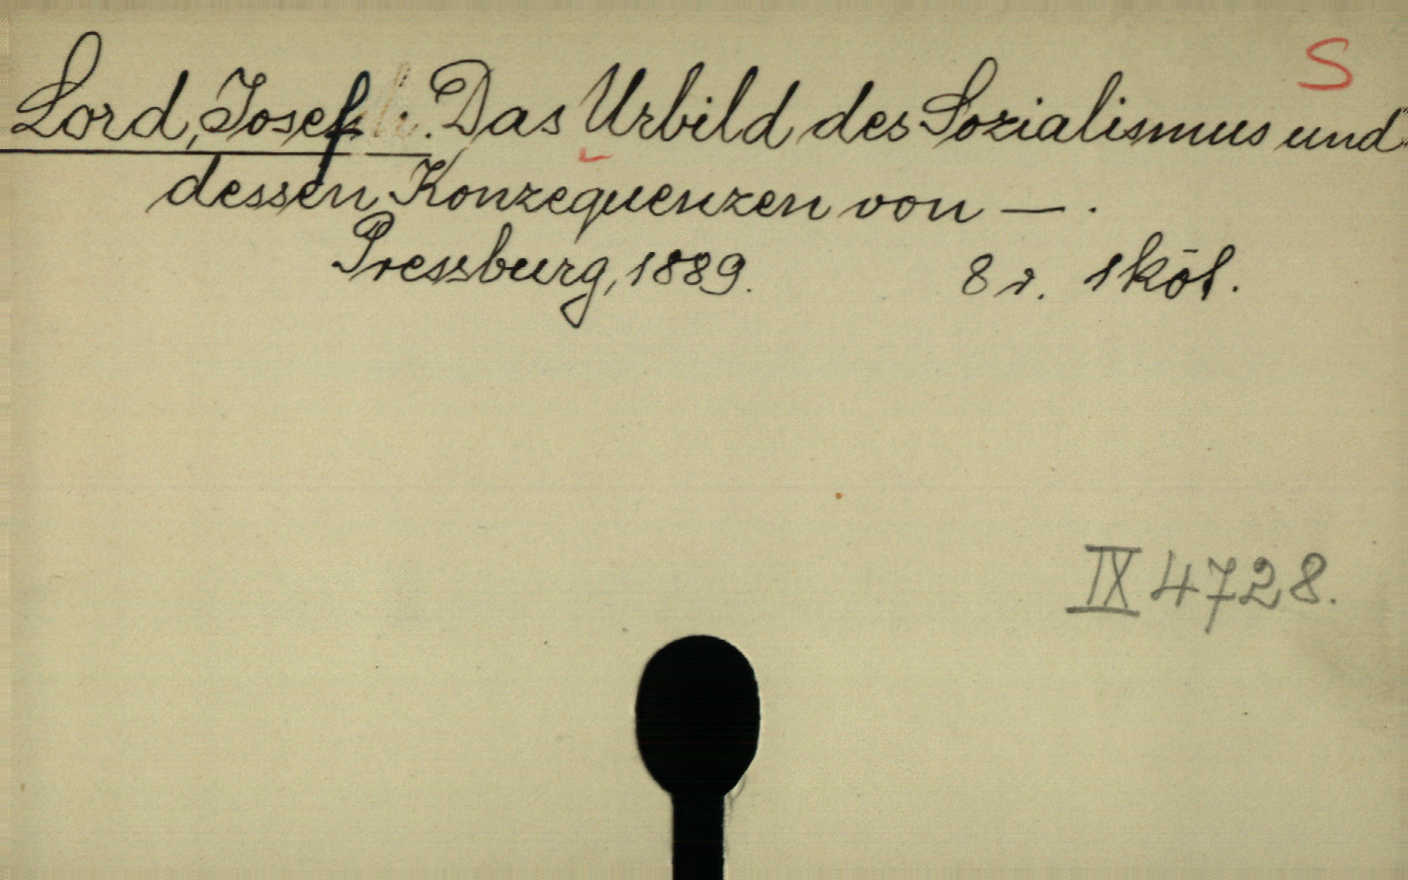 S
Lord, Josef. Das Urbild des Sozialismus und
dessen Konzequenzen von — .
Pressburg, 1889. 8 r. 1 köt.
IX 4728.